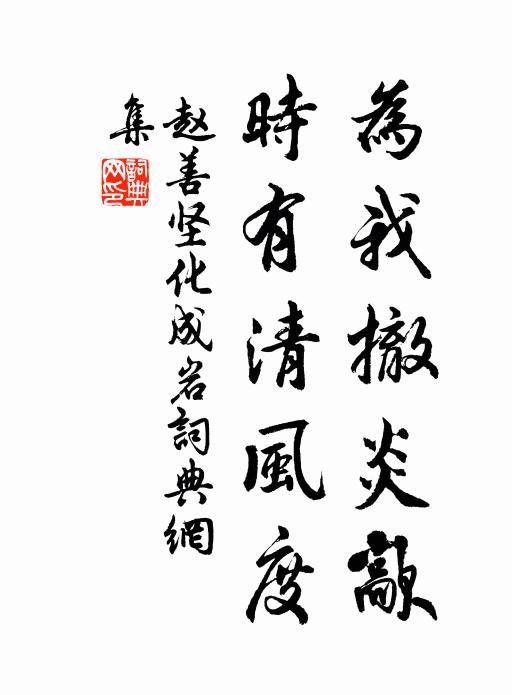 為我撤炎歊
時有清風度
赵善坚化成岩詞典網
集
詞典
网印